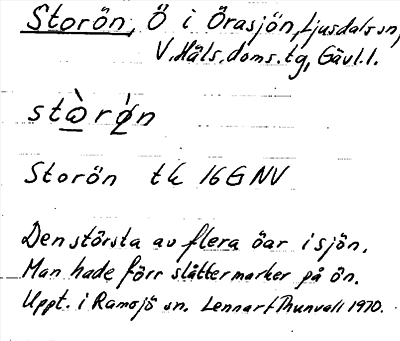 Storön, Ö i Örasjön, Ljusdals sn,
V. Häls. doms. tg, Gävl. l.
stò̱rø̱̀n
Storön tk 16G NV
Den största av flera öar i sjön.
Man hade förr slåttermarker på ön.
Uppt. i Ramsjö sn. Lennart Thunvall 1970.